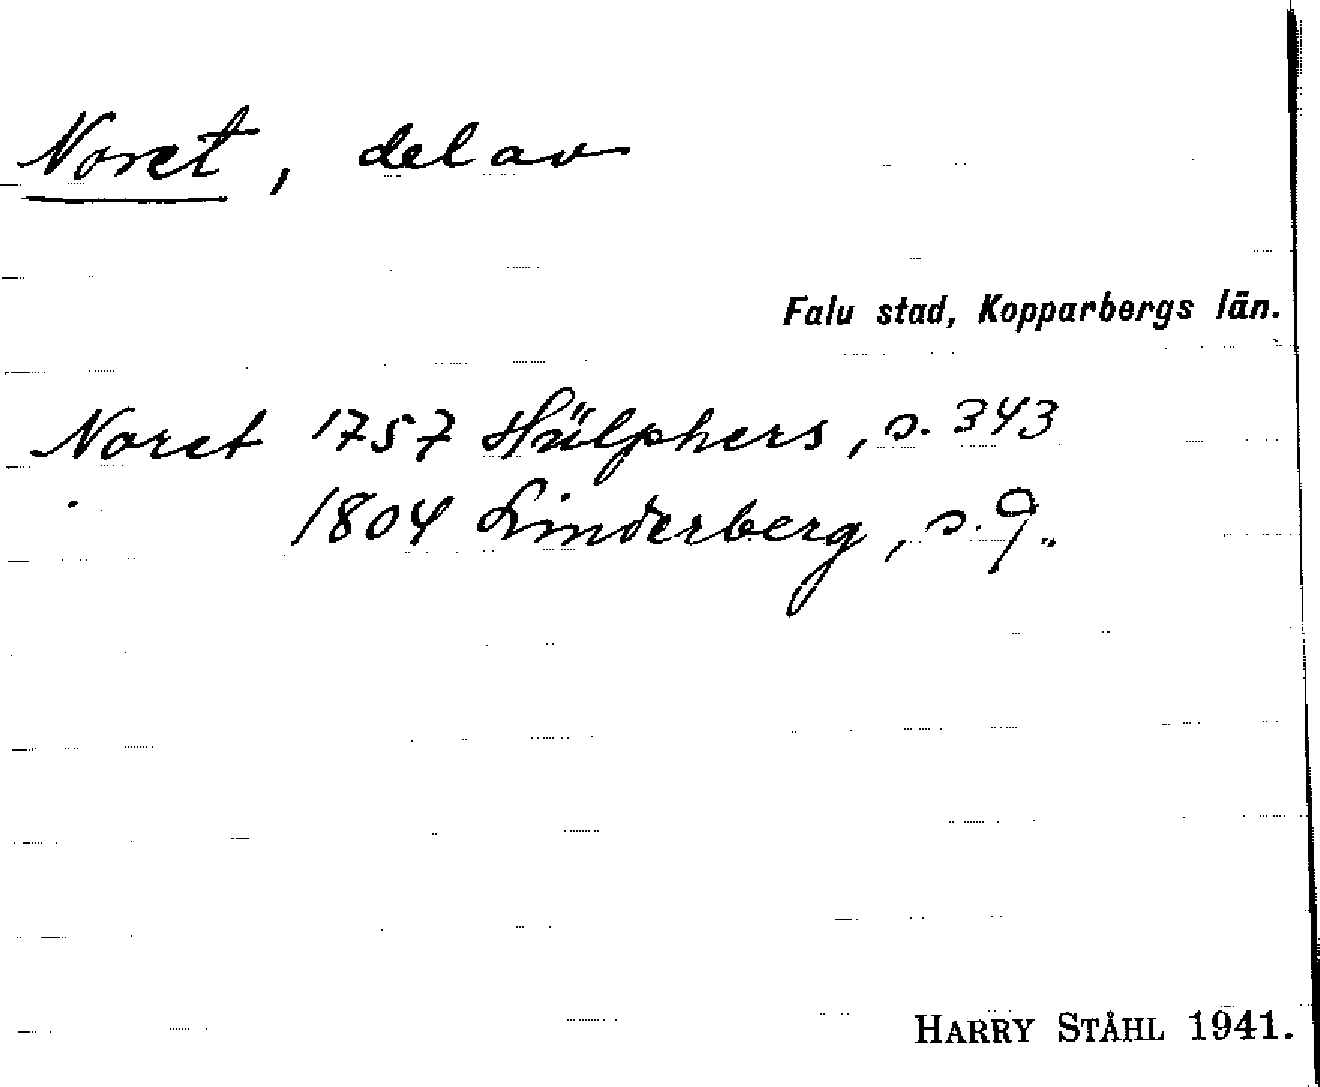 Noret, del av
Falu stad, Kopparbergs län.
Noret 1757 Hülphers, s. 343
1804 Linderberg, s. 9.
HARRY STÅHL 1941.